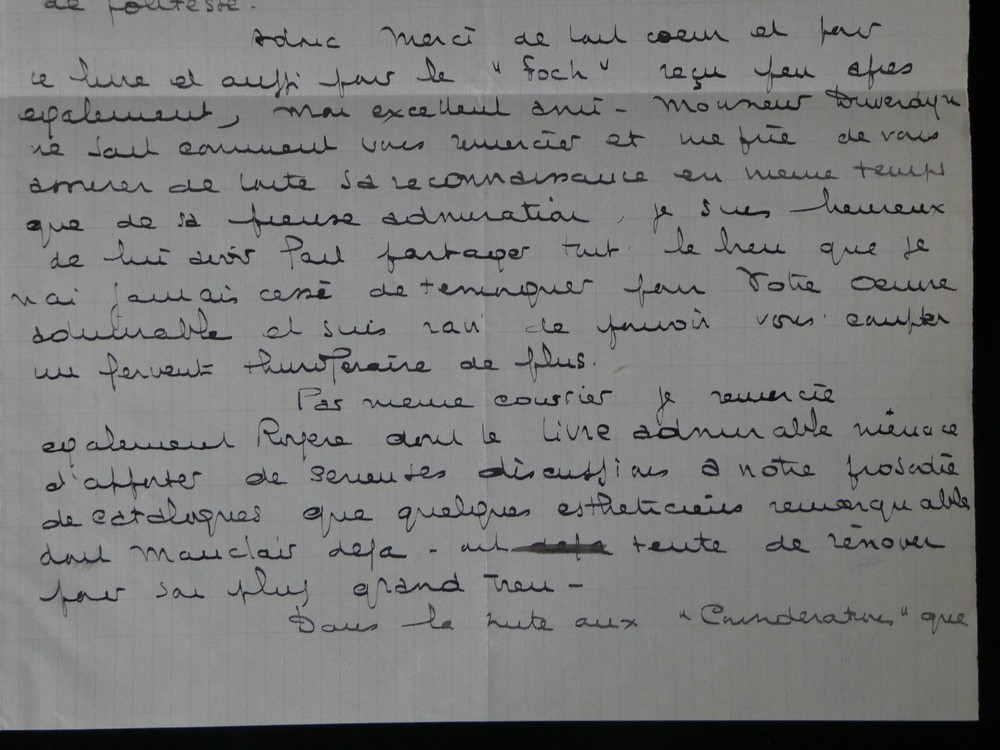 de politesse.
Adnc Merci de tout coeur et pour
ce livre et aussi pour le "Foch" reçu peu apres
egalement, mon excellent ami - Monsieur Duverdyn
ne sait comment vous remercier et me prie de vous
assurer de toute sa reconnaissance en meme temps
que de sa pieuse admiration, je suis heureux
de lui avoir fait partager tout le lieu que je
n'ai jamais cessé de temoigner pour Votre Oeuvre
admirable et suis ravi de pouvoir vous compter
un fervent thuriferaire de plus.
Par meme courrier je remercie
egalement Royere dont le livre admirable menace
d'apporter de serieuses discussions a notre prosodie
de catalogues que quelques estheticiens remarquables
dont Mauclair deja - ont tente de rénover
pour son plus grand
Dans la suite aux "Considerations" que